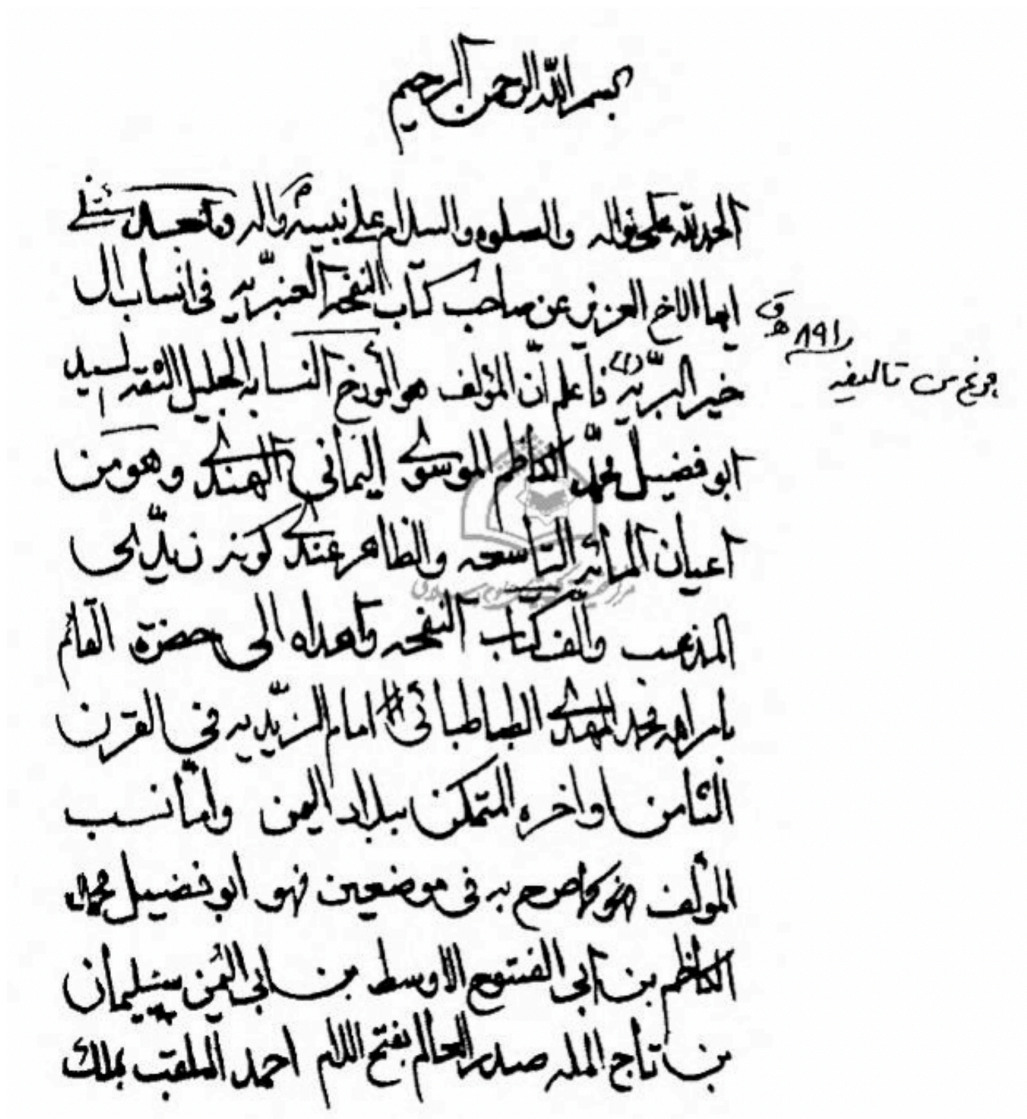 بسم الله الرحمن الرحيم
الحمد لله على نواله والصلوه والسلام على نبيه واله وبعد سئلتنى
ايها الاخ العزيز عن صاحب كتاب النفحه العنبريه فى انساب ال
خير البريه (١) فاعلم أنّ المؤلف هو المورخ النسابه الجليل الثقه السيد
ابو فضيل محمد الكاظم الموسوى اليمانى الهندى وهو من
اعيان المائه التاسعه والظاهر عندى كونه زيدى
المذهب والف كتاب النفحه واهداه الى حضرة القائم
بامر الله محمد المهدى الطباطبائى امام الزيديه فى القرن
الثامن اواخره المتمكن ببلاد اليمن وامّا نسب
المؤلف فهو كما صرح به فى موضعين فهو ابو فضيل محمد
الكاظم بن ابى الفتوح الاوسط بن ابى اليمن سليمان
بن تاج المله صدر العالم بفتح اللام احمد الملقب بملك
(١) فرغ من تاليفه
٨٩١ ه ق